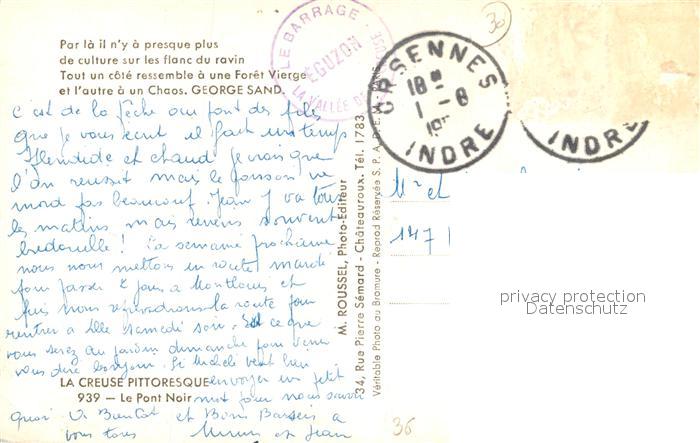 Par là il n'y à presque plus
de culture sur les flanc du ravin
Tout un côté ressemble à une Forêt Vierge
et l'autre à un Chaos. GEORGE SAND.
LE BARRAGE
ÉGUZON
LA VALLÉE DE
ORSENNES
18H
1 - 8
INDRE
INDRE
30
c'est de la pêche au fond des
que je vous écrit il fait un temps
splendide et chaud je crois que
l'on reussit mais le poisson ne
mord pas beaucoup. Jean y va tous
les matins mais reviens souvent
bredouille ! La semaine prochaine
nous nous mettons en route mardi
pour passer 2 jours a Montlouis et
puis nous reprendrons la route pour
rentrer a samedi soir. Est ce que
vous serez au jardin dimanche pour venir
vous dire bonjour. Si Michele veut bien
envoyer un petit
mot pour nous savoir
quoi. A Bientot et Bons Baisers a
vous tous et Jean
LA CREUSE PITTORESQUE
939 — Le Pont Noir
M. ROUSSEL, Photo-Editeur
34, Rue Pierre Sémard - Châteauroux. Tél. 1783
Véritable Photo au Bromure - Reprod Réservée S. P. A. D. E. M. - PARIS
Mr et
147
privacy protection
Datenschutz
36